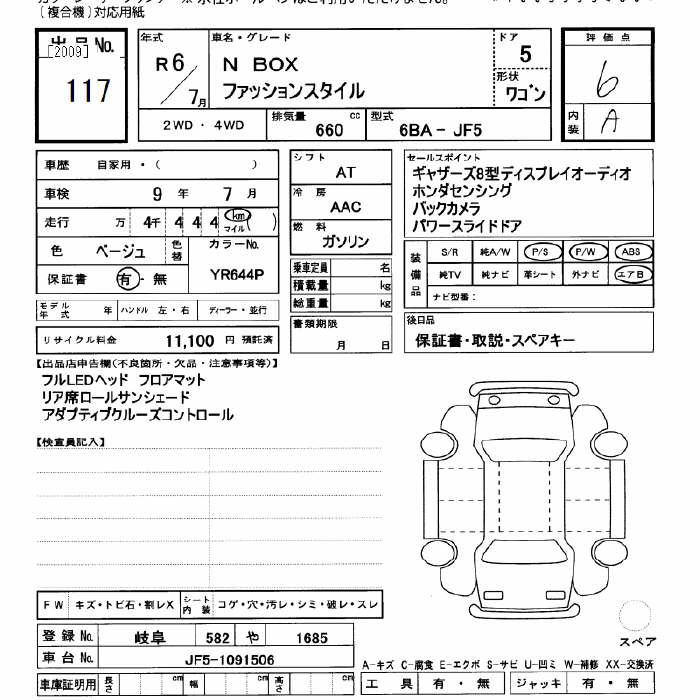 (複合機)対応用紙
出品 No.
[2009]
117
年式
R6/7月
車名・グレード
N BOX
ファッションスタイル
ドア
5
形状
ワゴン
評価点
6
内装
A
2WD ・ 4WD
排気量 cc
660
型式
6BA - JF5
車歴 自家用・( )
車検 9 年 7 月
走行 万 4千 4 4 4 km マイル ( )
色 ベージュ 色替 カラーNo.
保証書 有・無 YR644P
モデル年式 年 ハンドル 左・右 ディーラー・並行
リサイクル料金 11,100 円 預託済
シフト
AT
冷房
AAC
燃料
ガソリン
乗車定員 名
積載量 kg
総重量 kg
書類期限
月 日
セールスポイント
ギャザーズ8型ディスプレイオーディオ
ホンダセンシング
バックカメラ
パワースライドドア
装備品
S/R 純A/W P/S P/W ABS
純TV 純ナビ 革シート 外ナビ エアB
ナビ型番:
後日品
保証書・取説・スペアキー
【出品店申告欄(不良箇所・欠品・注意事項等)】
フルLEDヘッド フロアマット
リア席ロールサンシェード
アダプティブクルーズコントロール
【検査員記入】
FW キズ・トビ石・割レX シート内装 コゲ・穴・汚レ・シミ・破レ・スレ
登録No. 岐阜 582 や 1685
車台No. JF5-1091506
車庫証明用 長さ cm 幅 cm 高さ cm
スペア
A-キズ C-腐食 E-エクボ S-サビ U-凹ミ W-補修 XX-交換済
工具 有・無 ジャッキ 有・無